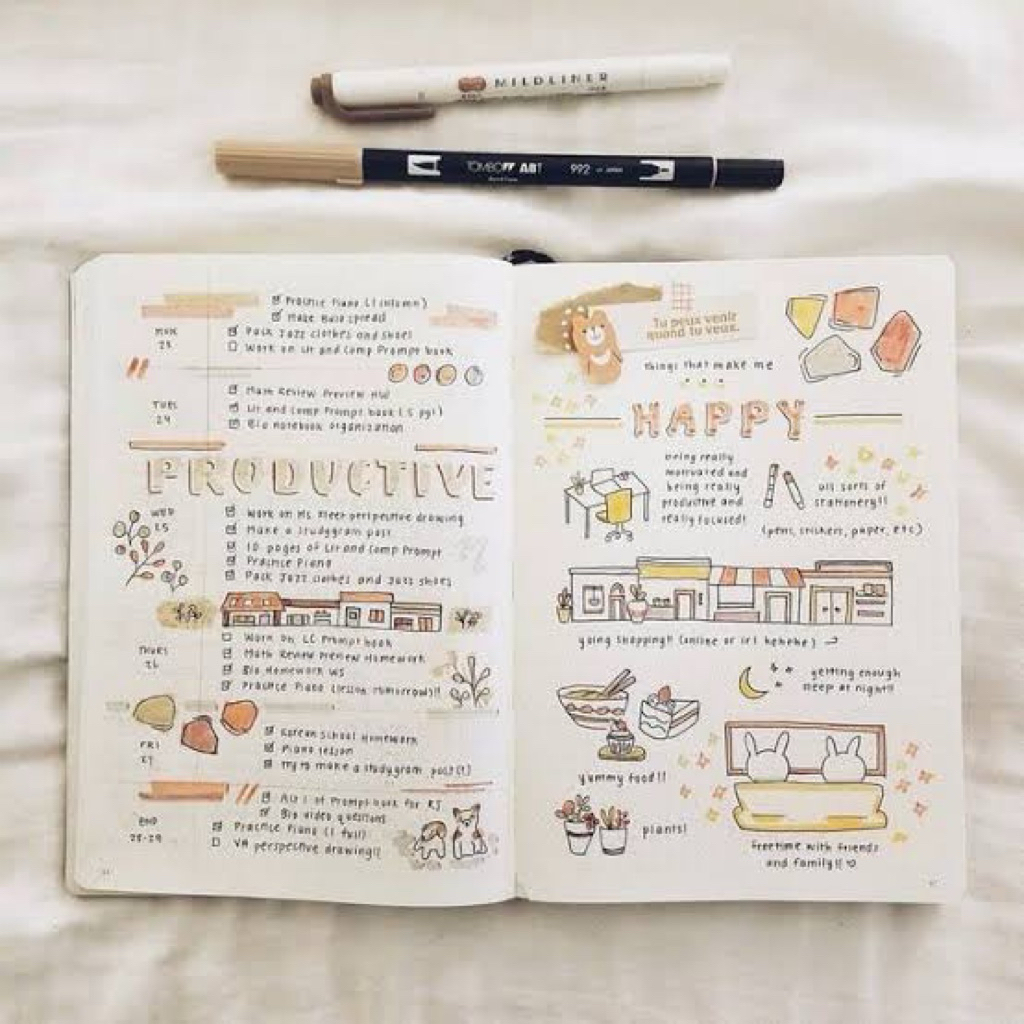 MILDLINER
TOMBOW ABT
992
Practice Piano (1 column)
Make Bujo spread
MON
23
Pack Jazz clothes and shoes
Work on Lit and Comp Prompt book
TUES
24
Math Review Preview HW
Lit and Comp Prompt book (5 pgs)
Bio notebook organization
PRODUCTIVE
WED
25
Work on Hs Meet perspective drawing
Make a studygram post
10 pages of Lit and Comp Prompt
Practice Piano
Pack Jazz clothes and Jazz shoes
THURS
26
Work on LC Prompt book
Math Review Preview Homework
Bio Homework WS
Practice Piano (lesson tomorrow)!!
FRI
27
Korean School Homework
Piano lesson
Try to make a studygram post(?)
END
28-29
Act 1 of Prompt book for RJ
Bio video questions
Practice Piano (1 full)
VA perspective drawing!!
Tu peux venir
quand tu veux.
things that make me
HAPPY
being really
motivated and
being really
productive and
really focused!
all sorts of
stationery!!
(pens, stickers, paper, etc)
going shopping!! (online or irl hehehe)
getting enough
sleep at night!!
yummy food!!
plants!
freetime with friends
and family!!